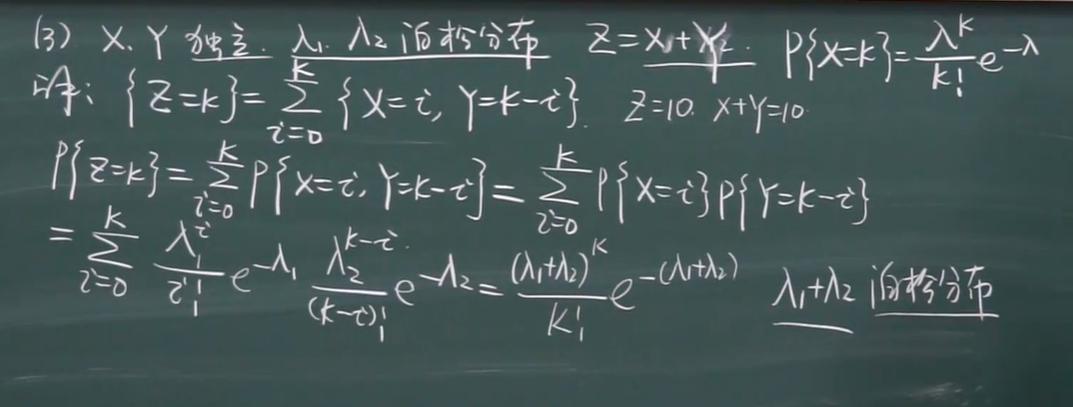 (3) X、Y 独立. λ₁、λ₂ 泊松分布 Z=X+Y. P{X=k}=\frac{λ^k}{k!}e^{-λ}
证: {Z=k}=\sum_{i=0}^{k}{X=i, Y=k-i}. Z=10. X+Y=10
P{Z=k}=\sum_{i=0}^{k}P{X=i, Y=k-i}=\sum_{i=0}^{k}P{X=i}P{Y=k-i}
=\sum_{i=0}^{k}\frac{λ_1^i}{i!}e^{-λ_1}\frac{λ_2^{k-i}}{(k-i)!}e^{-λ_2}=\frac{(λ_1+λ_2)^k}{k!}e^{-(λ_1+λ_2)} λ₁+λ₂ 泊松分布